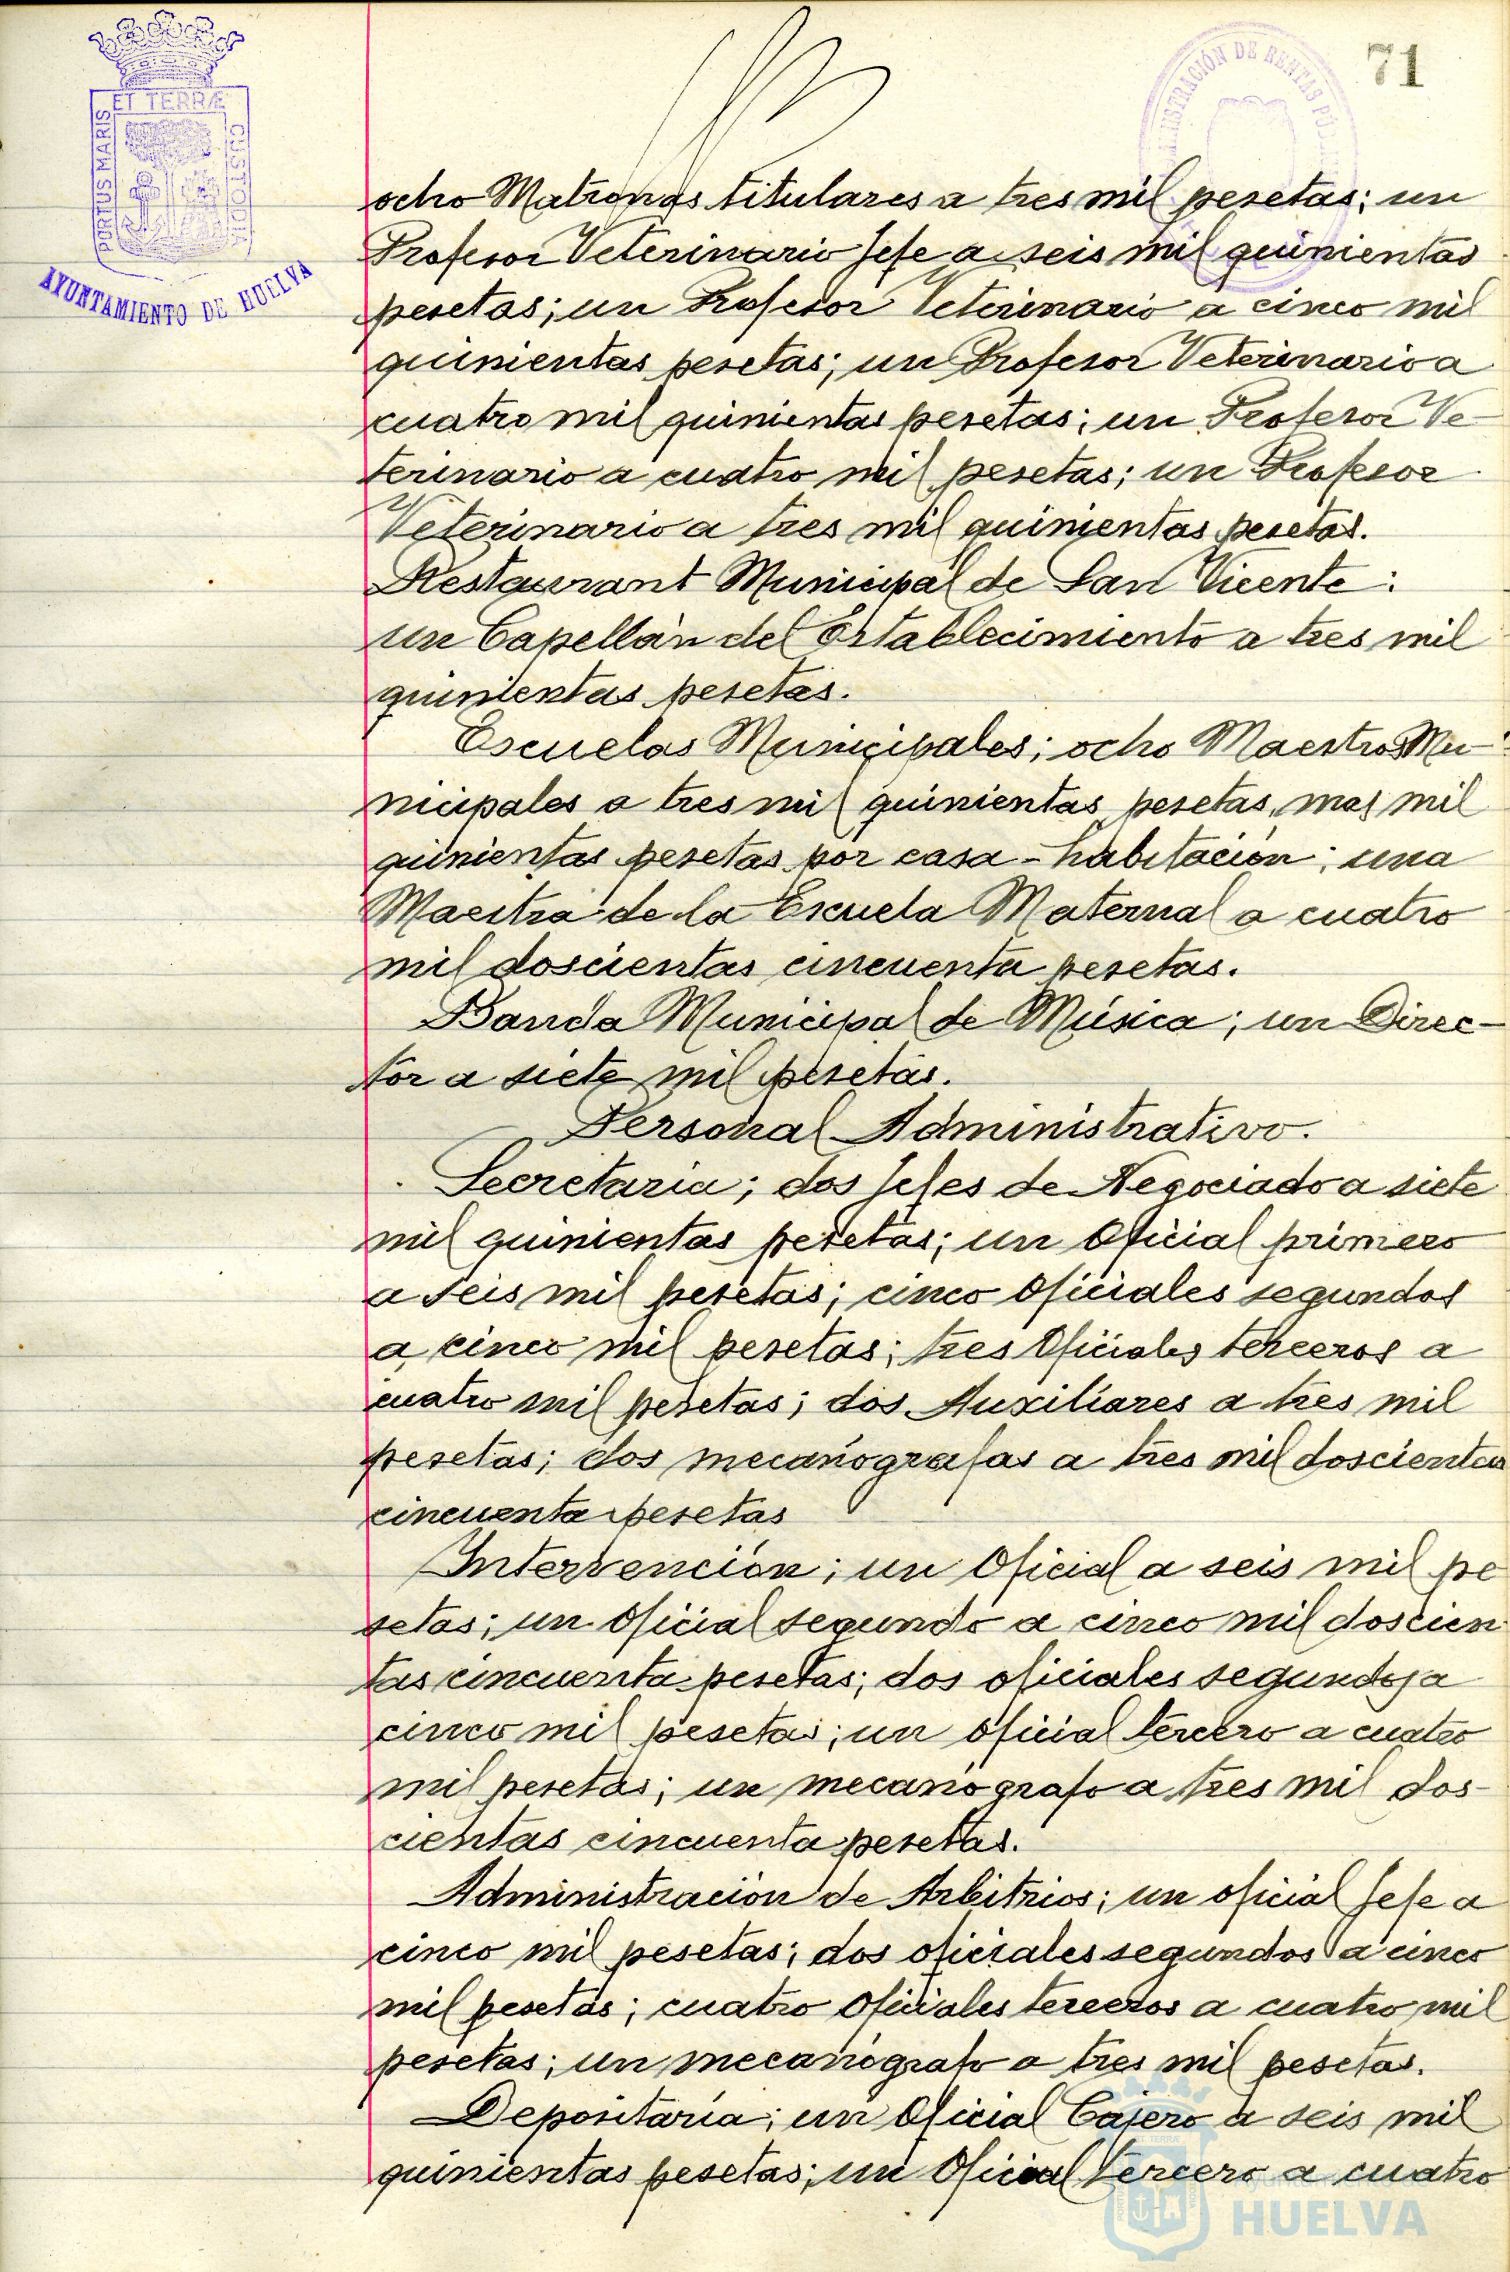 71
ET TERRÆ
PORTUS MARIS
CUSTODIA
AYUNTAMIENTO DE HUELVA
ocho Matronas titulares a tres mil pesetas; un
Profesor Veterinario Jefe a seis mil quinientas
pesetas; un Profesor Veterinario a cinco mil
quinientas pesetas; un Profesor Veterinario a
cuatro mil quinientas pesetas; un Profesor Ve-
terinario a cuatro mil pesetas; un Profesor
Veterinario a tres mil quinientas pesetas.
Restaurant Municipal de San Vicente:
un Capellán del Establecimiento a tres mil
quinientas pesetas.
Escuelas Municipales; ocho Maestros Mu-
nicipales a tres mil quinientas pesetas, mas mil
quinientas pesetas por casa-habitación; una
Maestra de la Escuela Maternal a cuatro
mil doscientas cincuenta pesetas.
Banda Municipal de Música; un Direc-
tor a siete mil pesetas.
Personal Administrativo.
Secretaria; dos Jefes de Negociado a siete
mil quinientas pesetas; un Oficial primero
a seis mil pesetas; cinco Oficiales segundos
a cinco mil pesetas; tres Oficiales terceros a
cuatro mil pesetas; dos Auxiliares a tres mil
pesetas; dos mecanógrafas a tres mil doscientas
cincuenta pesetas
Intervención; un Oficial a seis mil pe
setas; un Oficial segundo a cinco mil doscien
tas cincuenta pesetas; dos oficiales segundos a
cinco mil pesetas; un oficial tercero a cuatro
mil pesetas; un mecanógrafo a tres mil dos-
cientas cincuenta pesetas.
Administración de Arbitrios; un oficial Jefe a
cinco mil pesetas; dos oficiales segundos a cinco
mil pesetas; cuatro Oficiales terceros a cuatro mil
pesetas; un mecanógrafo a tres mil pesetas.
Depositaría; un Oficial Cajero a seis mil
quinientas pesetas; un Oficial tercero a cuatro
Ayuntamiento de
HUELVA